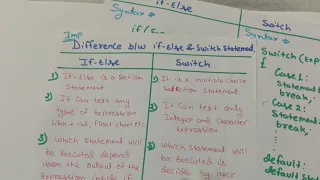 if-Else
Syntax →
Switch
Syntax →
if / E
Imp
Difference b/w if-else & Switch Statement.
If-Else
Switch
1) If-Else is a Section
Statement
1) It is a multiple choice
Selection statement
2) It Can test any
type of Expression
like + int, float char etc
2) It Can test only
Integer and Character
Expression
3) Which Statement will
be Executed depend
upon the output of the
Expression inside if
3) Which statement will
be executed is
decide by user
Switch (Exp
{
Case 1:
Statement
break,
Case 2:
Statement
break;
default:
default st